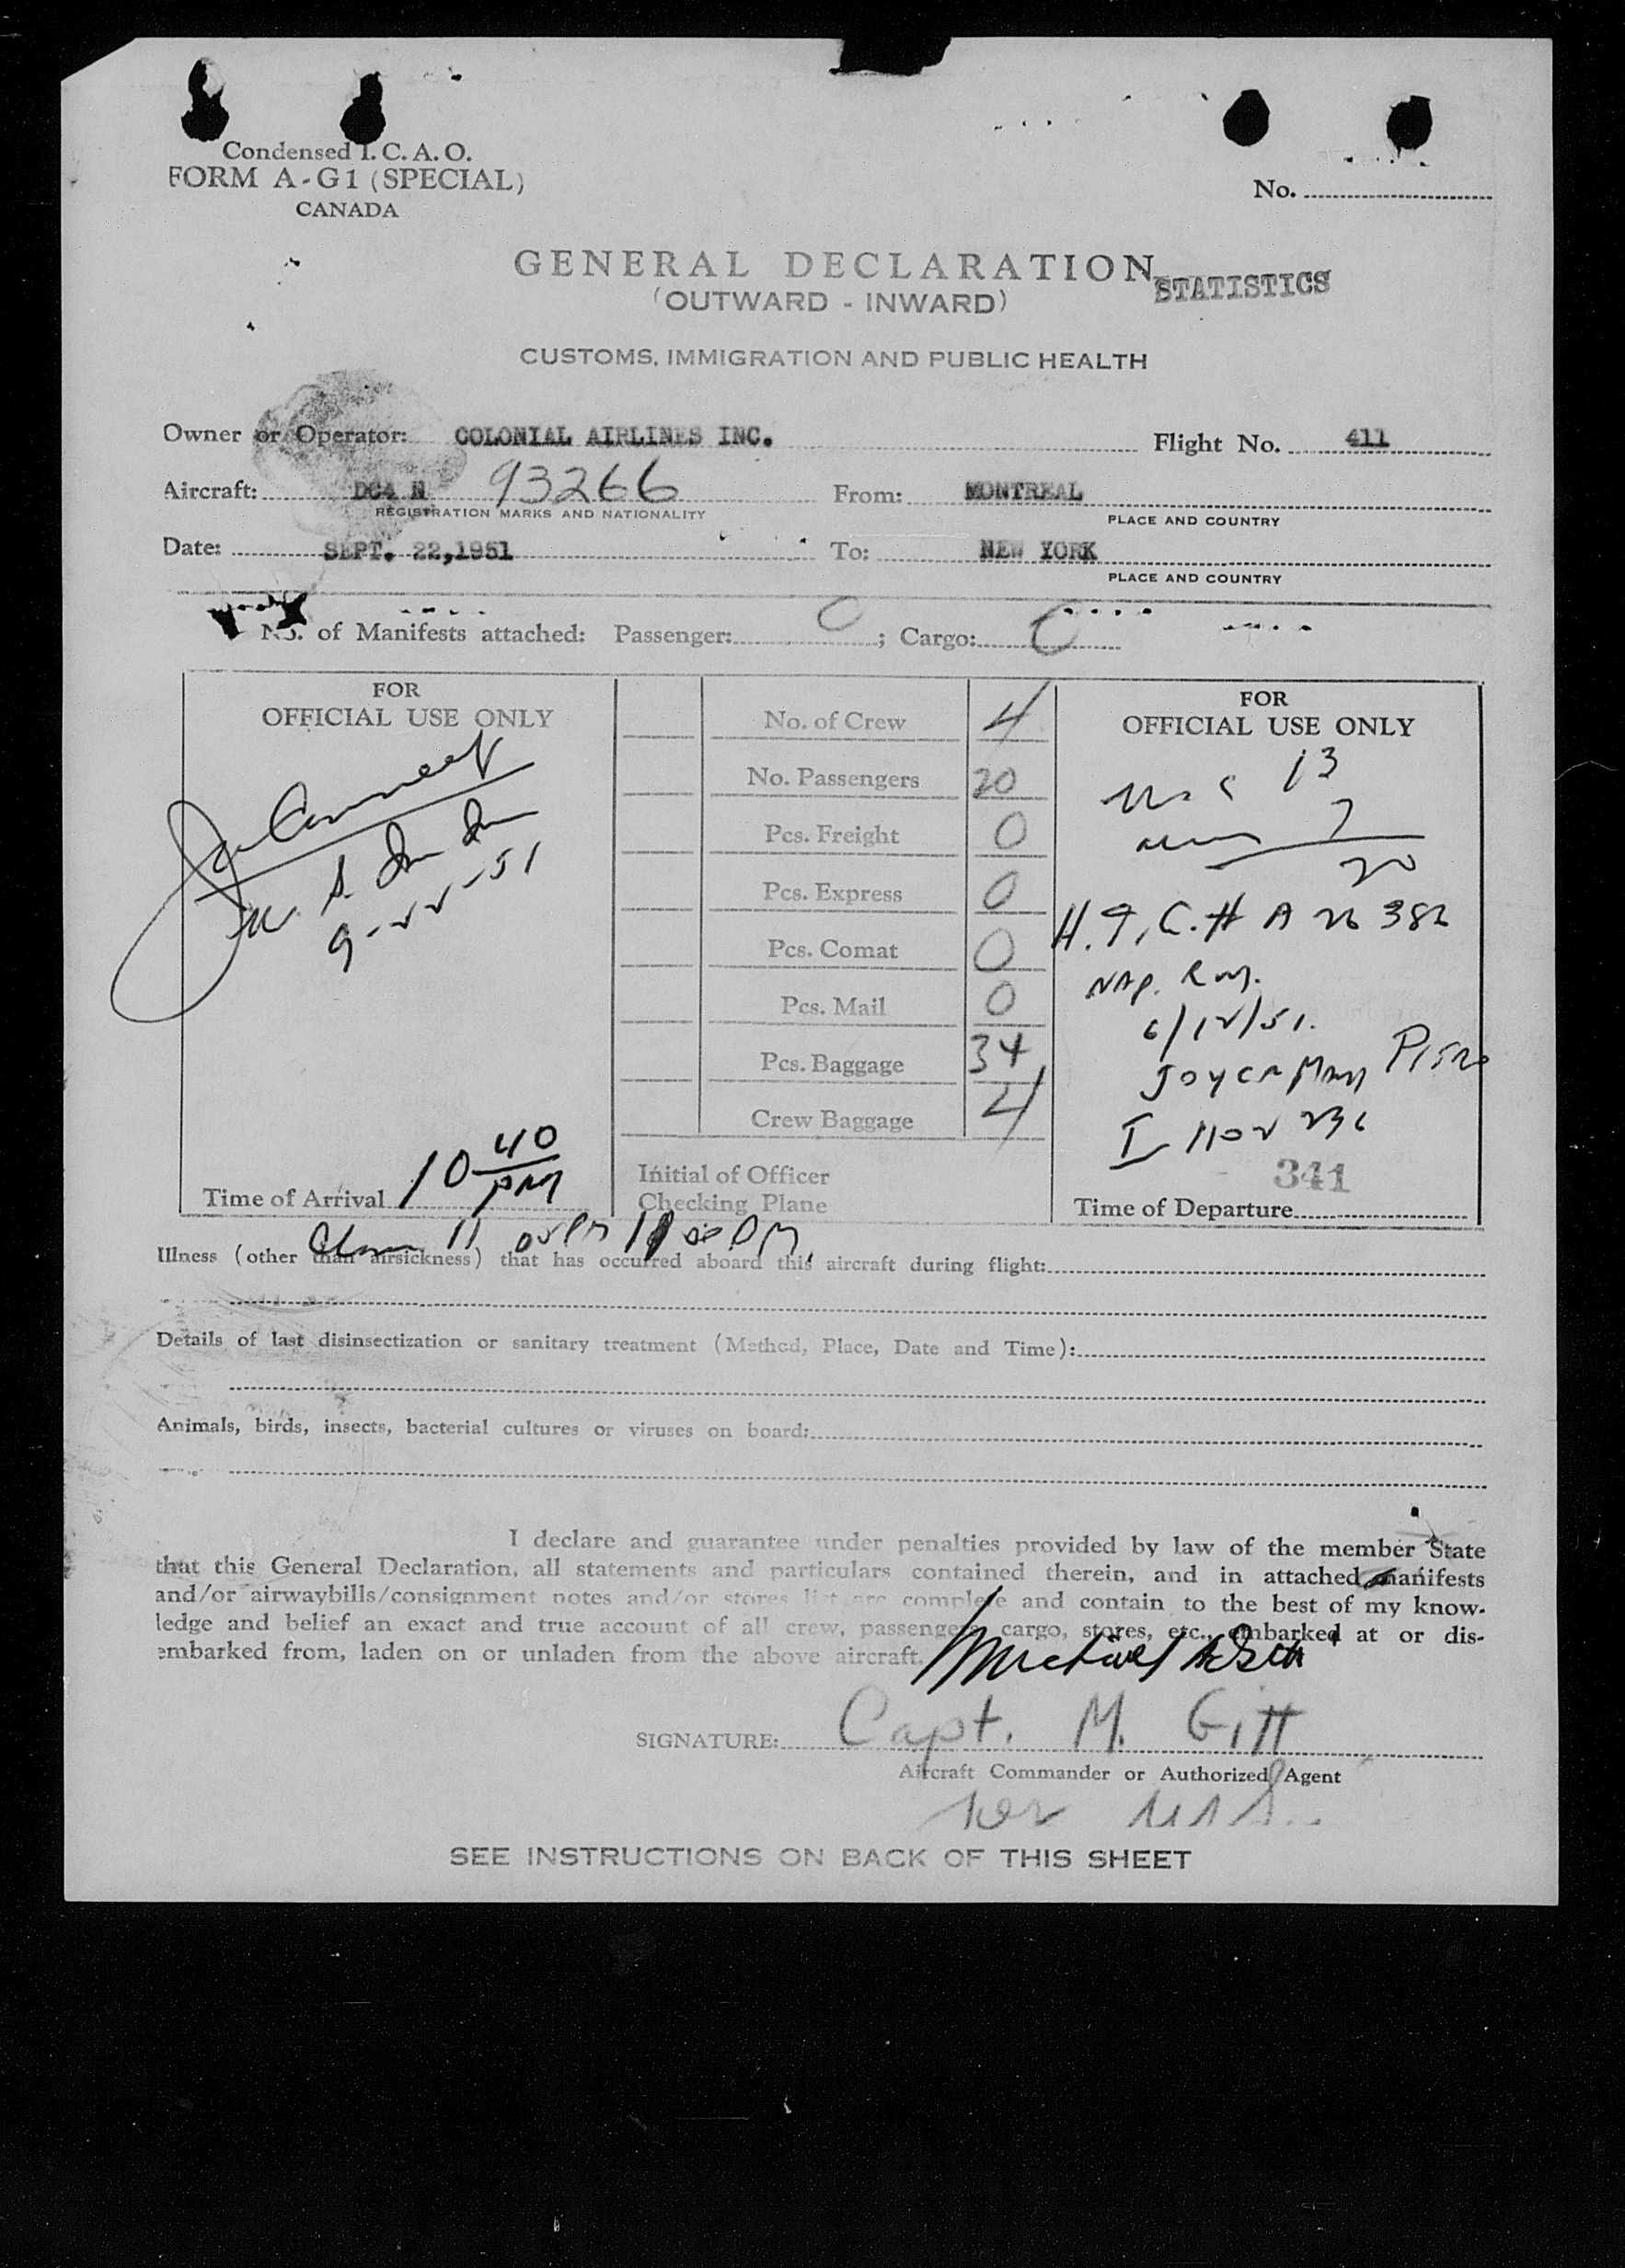 Condensed I. C. A. O.
FORM A-G1 (SPECIAL)
CANADA
No.
GENERAL DECLARATION
STATISTICS
(OUTWARD - INWARD)
CUSTOMS, IMMIGRATION AND PUBLIC HEALTH
Owner or Operator: COLONIAL AIRLINES INC. Flight No. 411
Aircraft: DC4 N 93266 From: MONTREAL
REGISTRATION MARKS AND NATIONALITY PLACE AND COUNTRY
Date: SEPT. 22,1951 To: NEW YORK
PLACE AND COUNTRY
No. of Manifests attached: Passenger: 0; Cargo: 0
FOR
OFFICIAL USE ONLY
9-22-51
Time of Arrival 10 40 PM
No. of Crew 4
No. Passengers 20
Pcs. Freight 0
Pcs. Express 0
Pcs. Comat 0
Pcs. Mail 0
Pcs. Baggage 34
Crew Baggage 4
Initial of Officer
Checking Plane
FOR
OFFICIAL USE ONLY
13
7
20
6/12/51.
341
Time of Departure
Illness (other than airsickness) that has occurred aboard this aircraft during flight:
Details of last disinsectization or sanitary treatment (Method, Place, Date and Time):
Animals, birds, insects, bacterial cultures or viruses on board:
I declare and guarantee under penalties provided by law of the member State
that this General Declaration, all statements and particulars contained therein, and in attached manifests
and/or airwaybills/consignment notes and/or stores list are complete and contain to the best of my know-
ledge and belief an exact and true account of all crew, passengers, cargo, stores, etc., embarked at or dis-
embarked from, laden on or unladen from the above aircraft.
SIGNATURE: Capt. M. Gitt
Aircraft Commander or Authorized Agent
SEE INSTRUCTIONS ON BACK OF THIS SHEET